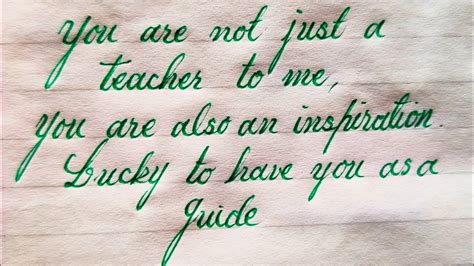 You are not just a
teacher to me,
you are also an inspiration.
Lucky to have you as a
guide